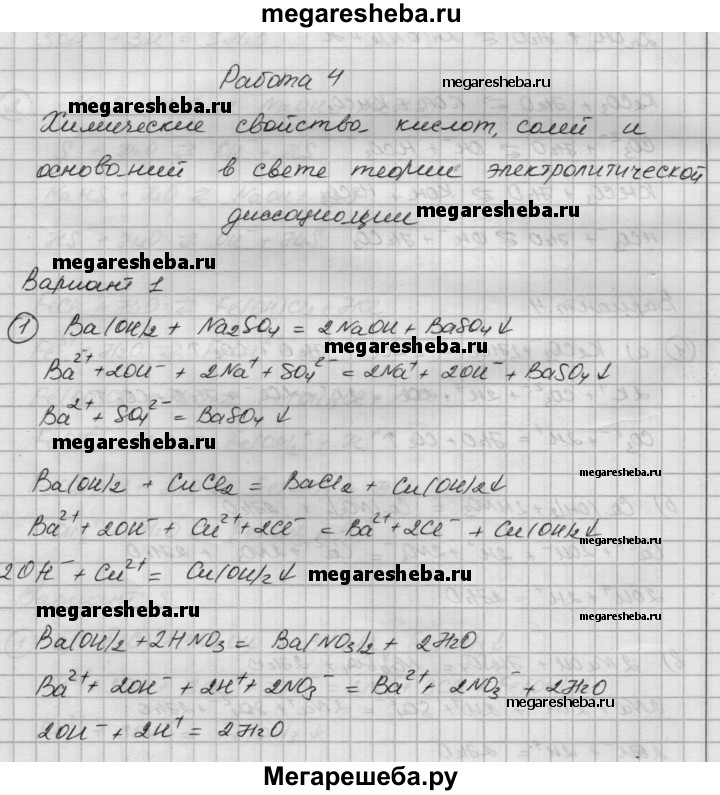 megaresheba.ru
Работа 4
megaresheba.ru
megaresheba.ru
Химические свойства кислот, солей и
оснований в свете теории электролитической
диссоциации megaresheba.ru
megaresheba.ru
Вариант 1
① Ba(OH)2 + Na2SO4 = 2NaOH + BaSO4↓
megaresheba.ru
Ba²⁺ + 2OH⁻ + 2Na⁺ + SO4²⁻ = 2Na⁺ + 2OH⁻ + BaSO4↓
Ba²⁺ + SO4²⁻ = BaSO4↓
megaresheba.ru
megaresheba.ru
Ba(OH)2 + CuCl2 = BaCl2 + Cu(OH)2↓
Ba²⁺ + 2OH⁻ + Cu²⁺ + 2Cl⁻ = Ba²⁺ + 2Cl⁻ + Cu(OH)2↓
megaresheba.ru
2OH⁻ + Cu²⁺ = Cu(OH)2↓ megaresheba.ru
megaresheba.ru
megaresheba.ru
Ba(OH)2 + 2HNO3 = Ba(NO3)2 + 2H2O
Ba²⁺ + 2OH⁻ + 2H⁺ + 2NO3⁻ = Ba²⁺ + 2NO3⁻ + 2H2O
megaresheba.ru
2OH⁻ + 2H⁺ = 2H2O
Мегарешеба.ру